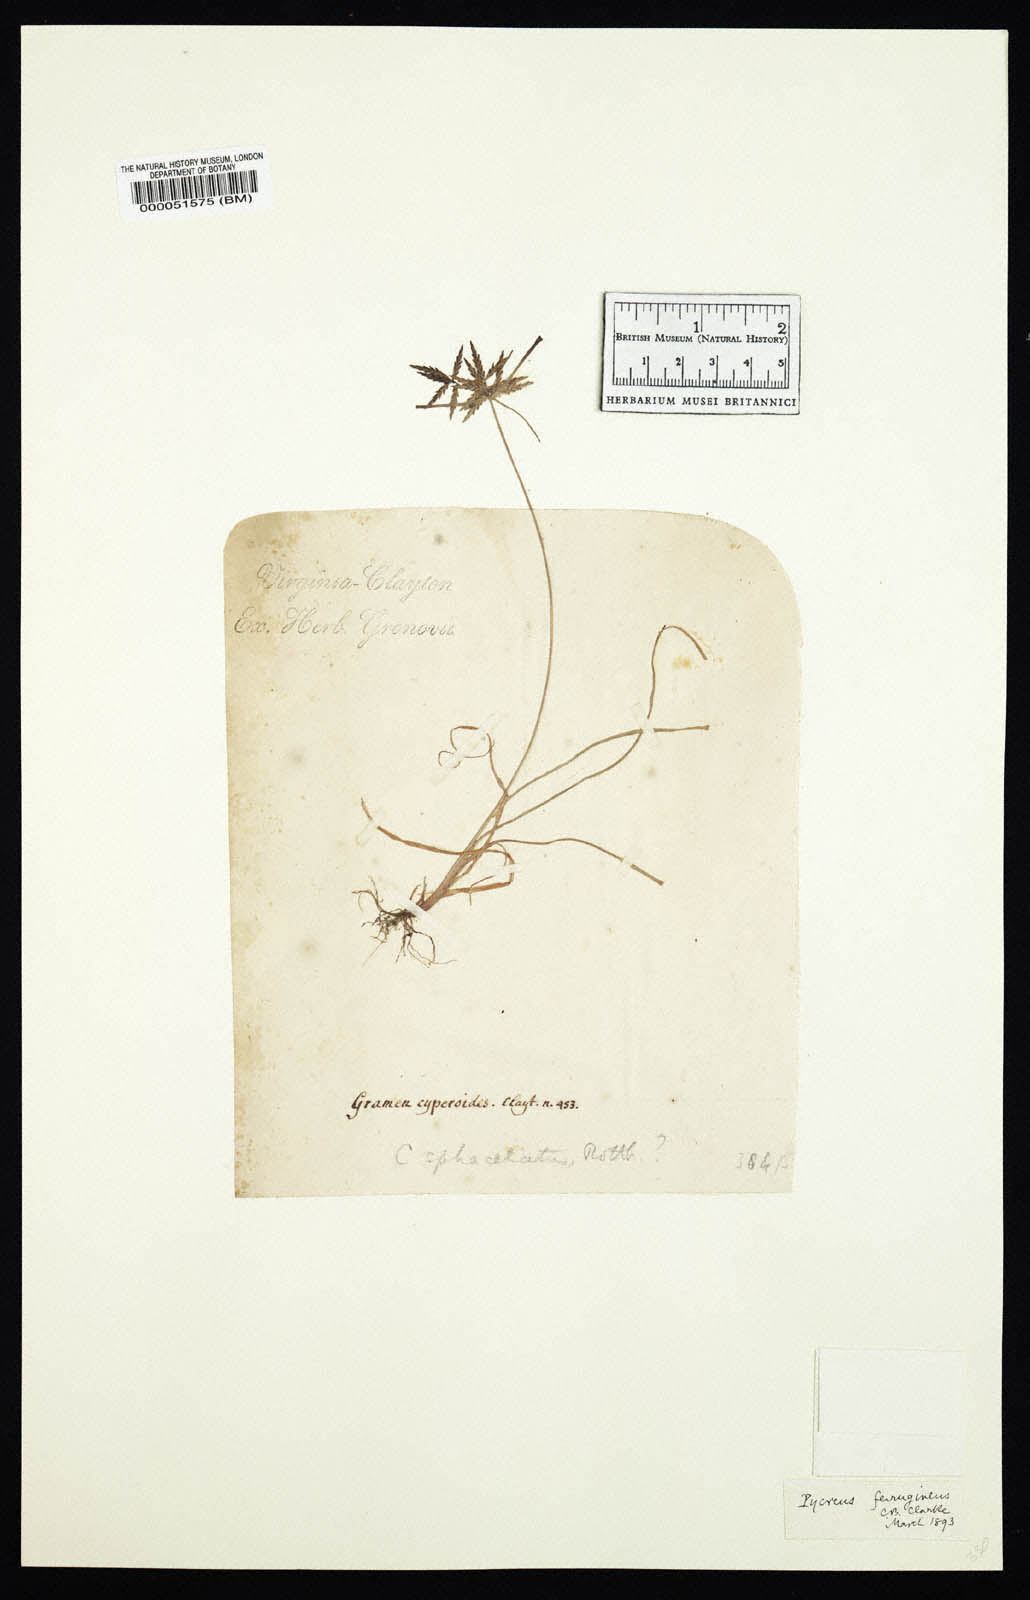 THE NATURAL HISTORY MUSEUM, LONDON
DEPARTMENT OF BOTANY
000051575 (BM)
1 2
BRITISH MUSEUM (NATURAL HISTORY)
1 2 3 4 5
HERBARIUM MUSEI BRITANNICI
Virginia-Clayton
Ex. Herb. Gronovii
Gramen cyperoides. Clayt. n. 453.
C sphacelatus, Rottb. ?
Pycreus ferrugineus
C.B. Clarke
March 1893